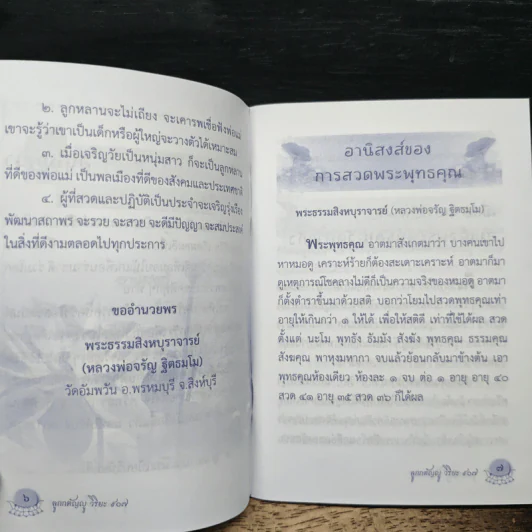 ๒. ลูกหลานจะไม่เถียง จะเคารพเชื่อฟังพ่อแม่
เขาจะรู้ว่าเขาเป็นเด็กหรือผู้ใหญ่จะวางตัวได้เหมาะสม
๓. เมื่อเจริญวัยเป็นหนุ่มสาว ก็จะเป็นลูกหลาน
ที่ดีของพ่อแม่ เป็นพลเมืองที่ดีของสังคมและประเทศชาติ
๔. ผู้ที่สวดและปฏิบัติเป็นประจำจะเจริญรุ่งเรือง
พัฒนาสถาพร จะรวย จะสวย จะดีมีปัญญา จะสมประสงค์
ในสิ่งที่ดีงามตลอดไปทุกประการ
ขออำนวยพร
พระธรรมสิงหบุราจารย์
(หลวงพ่อจรัญ ฐิตธมฺโม)
วัดอัมพวัน อ.พรหมบุรี จ.สิงห์บุรี
๖
อานิสงส์ของ
การสวดพระพุทธคุณ
พระธรรมสิงหบุราจารย์ (หลวงพ่อจรัญ ฐิตธมฺโม)
พระพุทธคุณ อาตมาสังเกตมาว่า บางคนเขาไป
หาหมอดู เคราะห์ร้ายก็ต้องสะเดาะเคราะห์ อาตมาก็มา
ดูเหตุการณ์โชคลางไม่ดีก็เป็นความจริงของหมอดู อาตมา
ก็ตั้งตำราขึ้นมาด้วยสติ บอกว่าโยมไปสวดพุทธคุณเท่า
อายุให้เกินกว่า ๑ ให้ได้ เพื่อให้สติดี เท่าที่ใช้ได้ผล สวด
ตั้งแต่ นะโม พุทธัง ธัมมัง สังฆัง พุทธคุณ ธรรมคุณ
สังฆคุณ พาหุงมหากา จบแล้วย้อนกลับมาข้างต้น เอา
พุทธคุณห้องเดียว ห้องละ ๑ จบ ต่อ ๑ อายุ อายุ ๔๐
สวด ๔๑ อายุ ๓๕ สวด ๓๖ ก็ได้ผล
๗